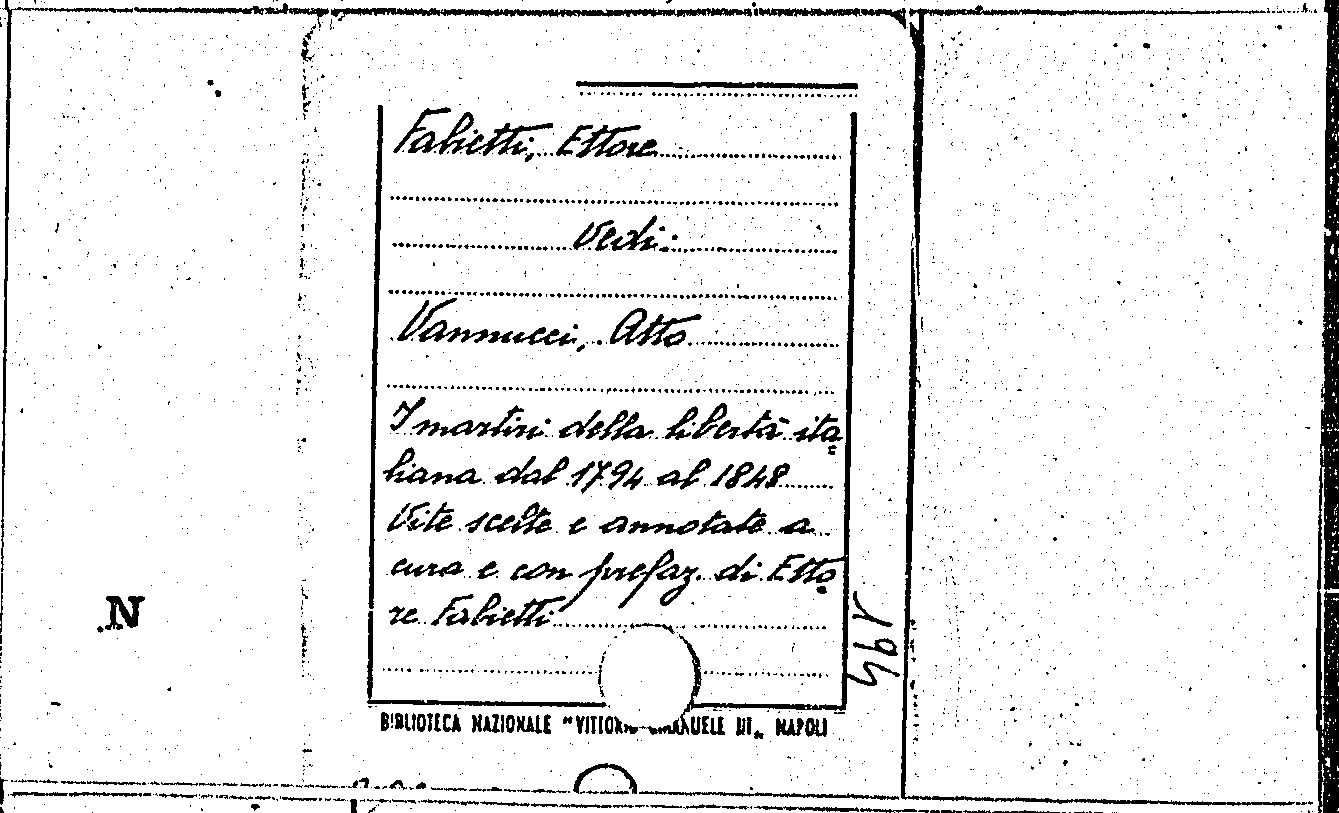 Fabietti, Ettore
Vedi:
Vannucci, Atto
I martiri della libertà ita=
liana dal 1794 al 1848
Vite scelte e annotate a
cura e con prefaz. di Etto
re Fabietti
BIBLIOTECA NAZIONALE "VITTORIO EMANUELE III" NAPOLI
N